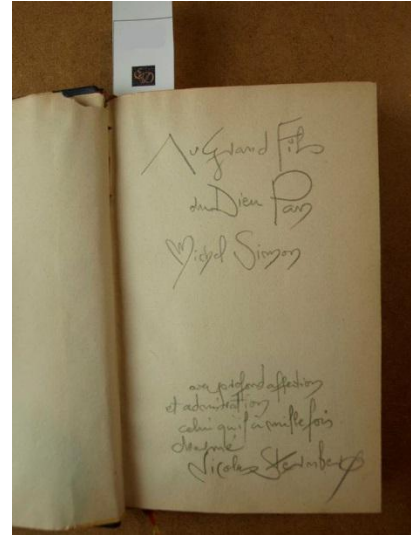 Au Grand Fils
du Dieu Pan
Michel Simon
avec profond affection
et admiration
celui qui l'a mille fois
dessiné
Nicolas Sternberg